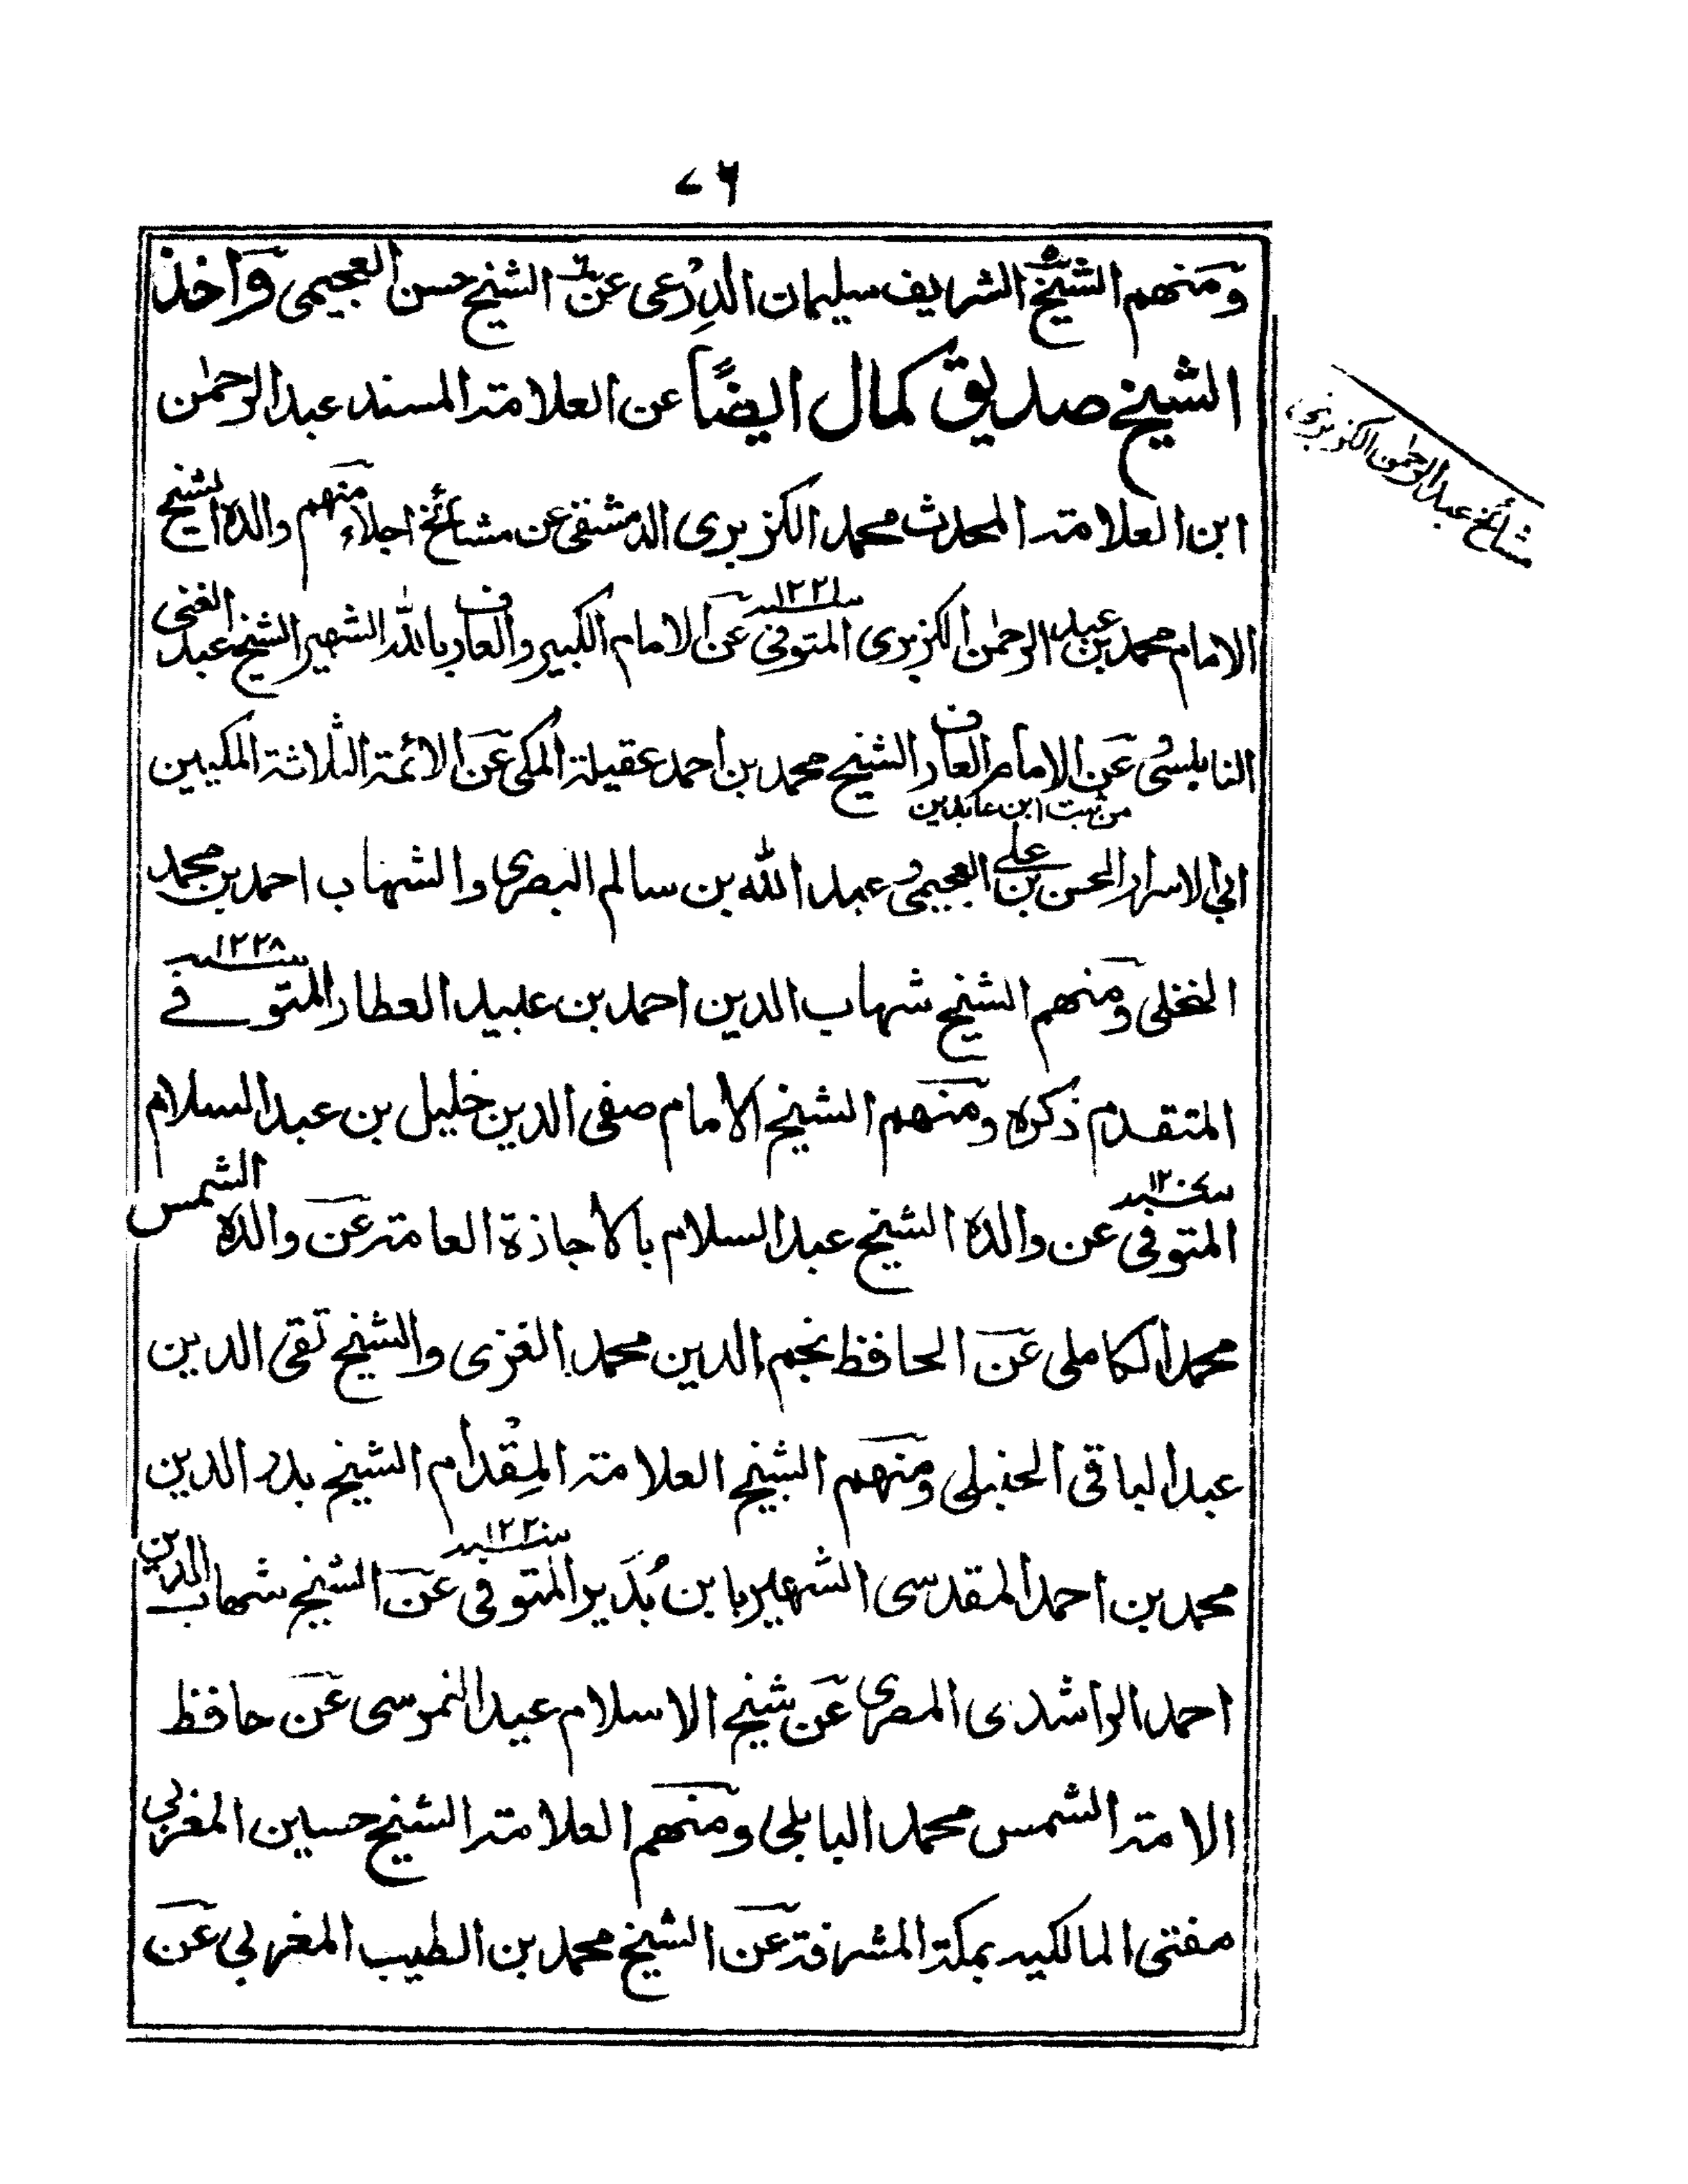 ٧٦
ومنهم الشيخ الشريف سليمان الدِرْعى عن الشيخ حسن العجيمى وَاخذ
الشيخ صديق كمال ايضًا عن العلامة المسند عبد الرحمٰن
ابن العلامة المحدث محمد الكزبرى الدمشقى عن مشائخ اجلاء منهم والده الشيخ
الامام محمد بن عبد الرحمٰن الكزبرى المتوفى سنة ١٢٢١ عن الامام الكبير والعارف بالله الشهير الشيخ عبد الغنى
النابلسى وعن الامام العارف الشيخ محمد بن احمد عقيلة المكى عن الائمة الثلاثة المكيين
من ثبت ابن عابدين
ابى الاسرار الحسن بن على العجيمى وعبد الله بن سالم البصرى والشهاب احمد بن محمد
النخلى ومنهم الشيخ شهاب الدين احمد بن عبيد العطار المتوفى سنة ١٢٢٨
المتقدم ذكره ومنهم الشيخ الامام صفى الدين خليل بن عبد السلام
المتوفى سنة ١٢٠٧ عن والده الشيخ عبد السلام بالاجازة العامة عن والده الشمس
محمد الكاملى عن الحافظ نجم الدين محمد الغزى والشيخ تقى الدين
عبد الباقى الحنبلى ومنهم الشيخ العلامة المِقْدام الشيخ بدر الدين
محمد بن احمد المقدسى الشهير بابن بُدَير المتوفى سنة ١٢٢٠ عن الشيخ شهاب الدين
احمد الراشدى المصرى عن شيخ الاسلام عيد النمرسى عن حافظ
الامة الشمس محمد البابلى ومنهم العلامة الشيخ حسين المغربى
مفتى المالكيه بمكة المشرفة عن الشيخ محمد بن الطيب المغربى عن
مشائخ عبد الرحمٰن الكزبرى